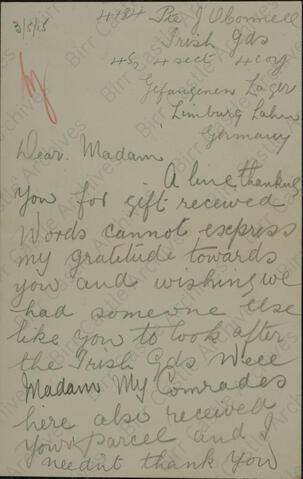 3/5/15
4184 Pte J OConnell
Irish Gds
4 sect 4 coy
Gefangenen Lager
Limburg Lahn
Germany
Dear. Madam
A line thanking
you for gift received
Words cannot express
my gratitude towards
you and wishing we
had someone else
like you to look after
the Irish Gds
Madam My Comrades
here also received
your parcel and I
neednt thank you
Birr Castle Archives